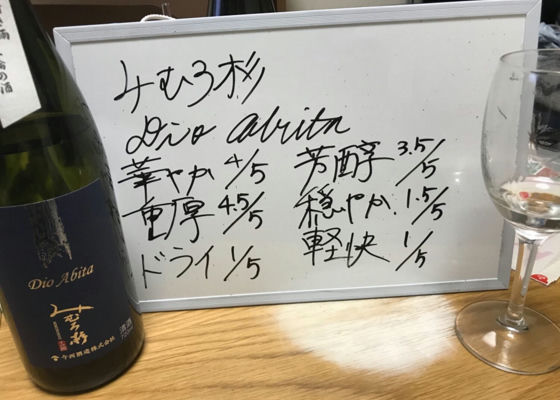 みむろ杉
Dio abita
華やか 4/5 芳醇 3.5/5
重厚 4.5/5 穏やか 1.5/5
ドライ 1/5 軽快 1/5
Dio Abita
みむろ杉
今西酒造株式会社